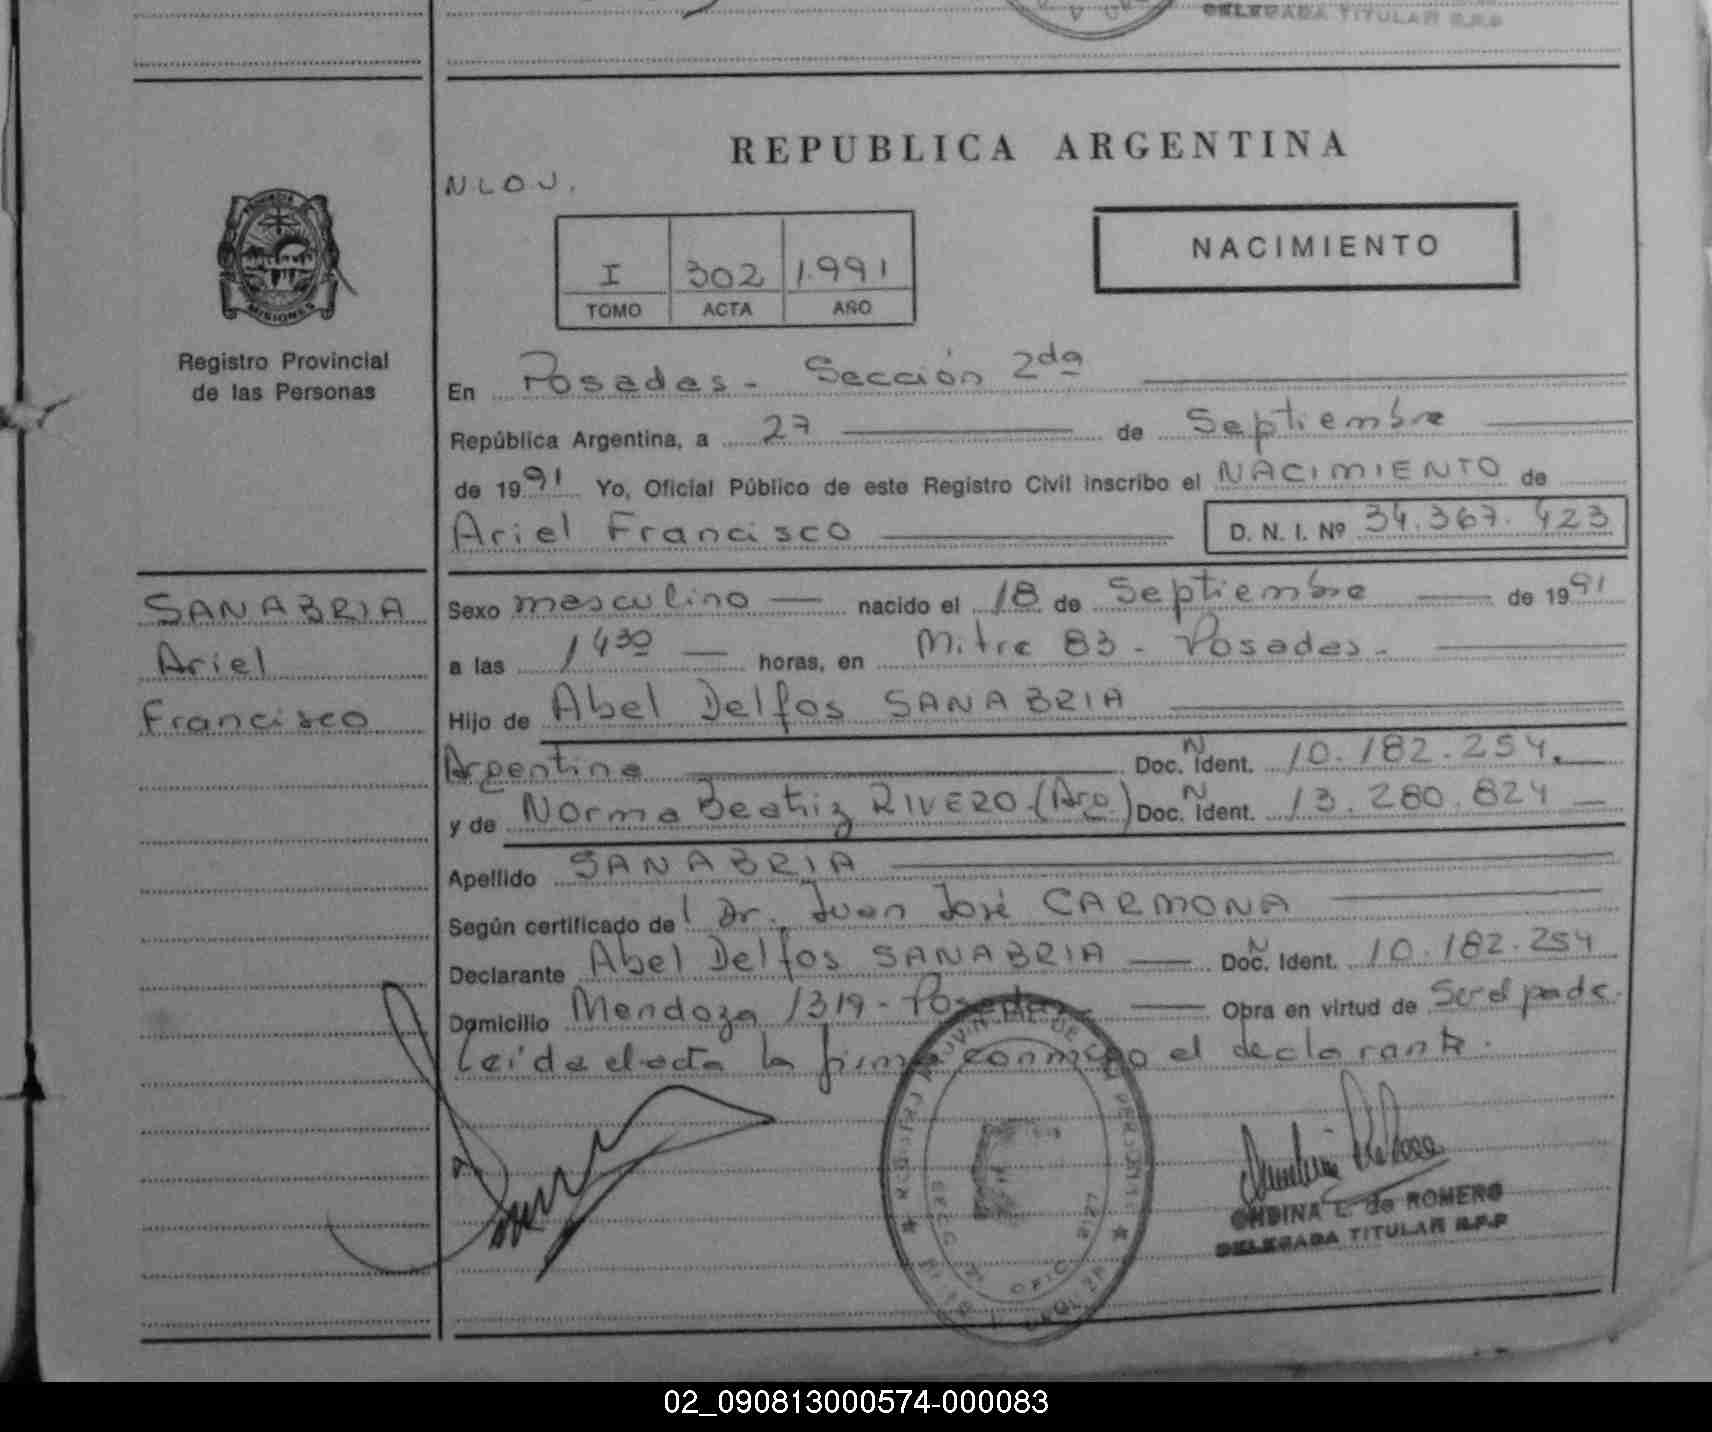 DELEGADA TITULAR R.P.P
REPUBLICA ARGENTINA
NLOJ.
NACIMIENTO
I 302 1.991
TOMO ACTA AÑO
MISIONES
Registro Provincial
de las Personas
En Posadas - Sección 2da
República Argentina, a 27 de Septiembre
de 1991 Yo, Oficial Público de este Registro Civil inscribo el NACIMIENTO de
Ariel Francisco D. N. I. Nº 34.367.423
SANABRIA
Ariel
Francisco
Sexo masculino nacido el 18 de Septiembre de 1991
a las 1430 horas, en Mitre 83 - Posadas -
Hijo de Abel Delfos SANABRIA
Argentino Doc. N Ident. 10.182.254.
y de Norma Beatriz RIVERO (Arg.) Doc. N Ident. 13.280.824
Apellido SANABRIA
Según certificado del Dr. Juan José CARMONA
Declarante Abel Delfos SANABRIA Doc. N Ident. 10.182.254
Domicilio Mendoza 1319 - Posadas Obra en virtud de Ser el padre.
Leida el acta la firma conmigo el declarante.
ONDINA L. de ROMERO
DELEGADA TITULAR R.P.P
02_090813000574-000083